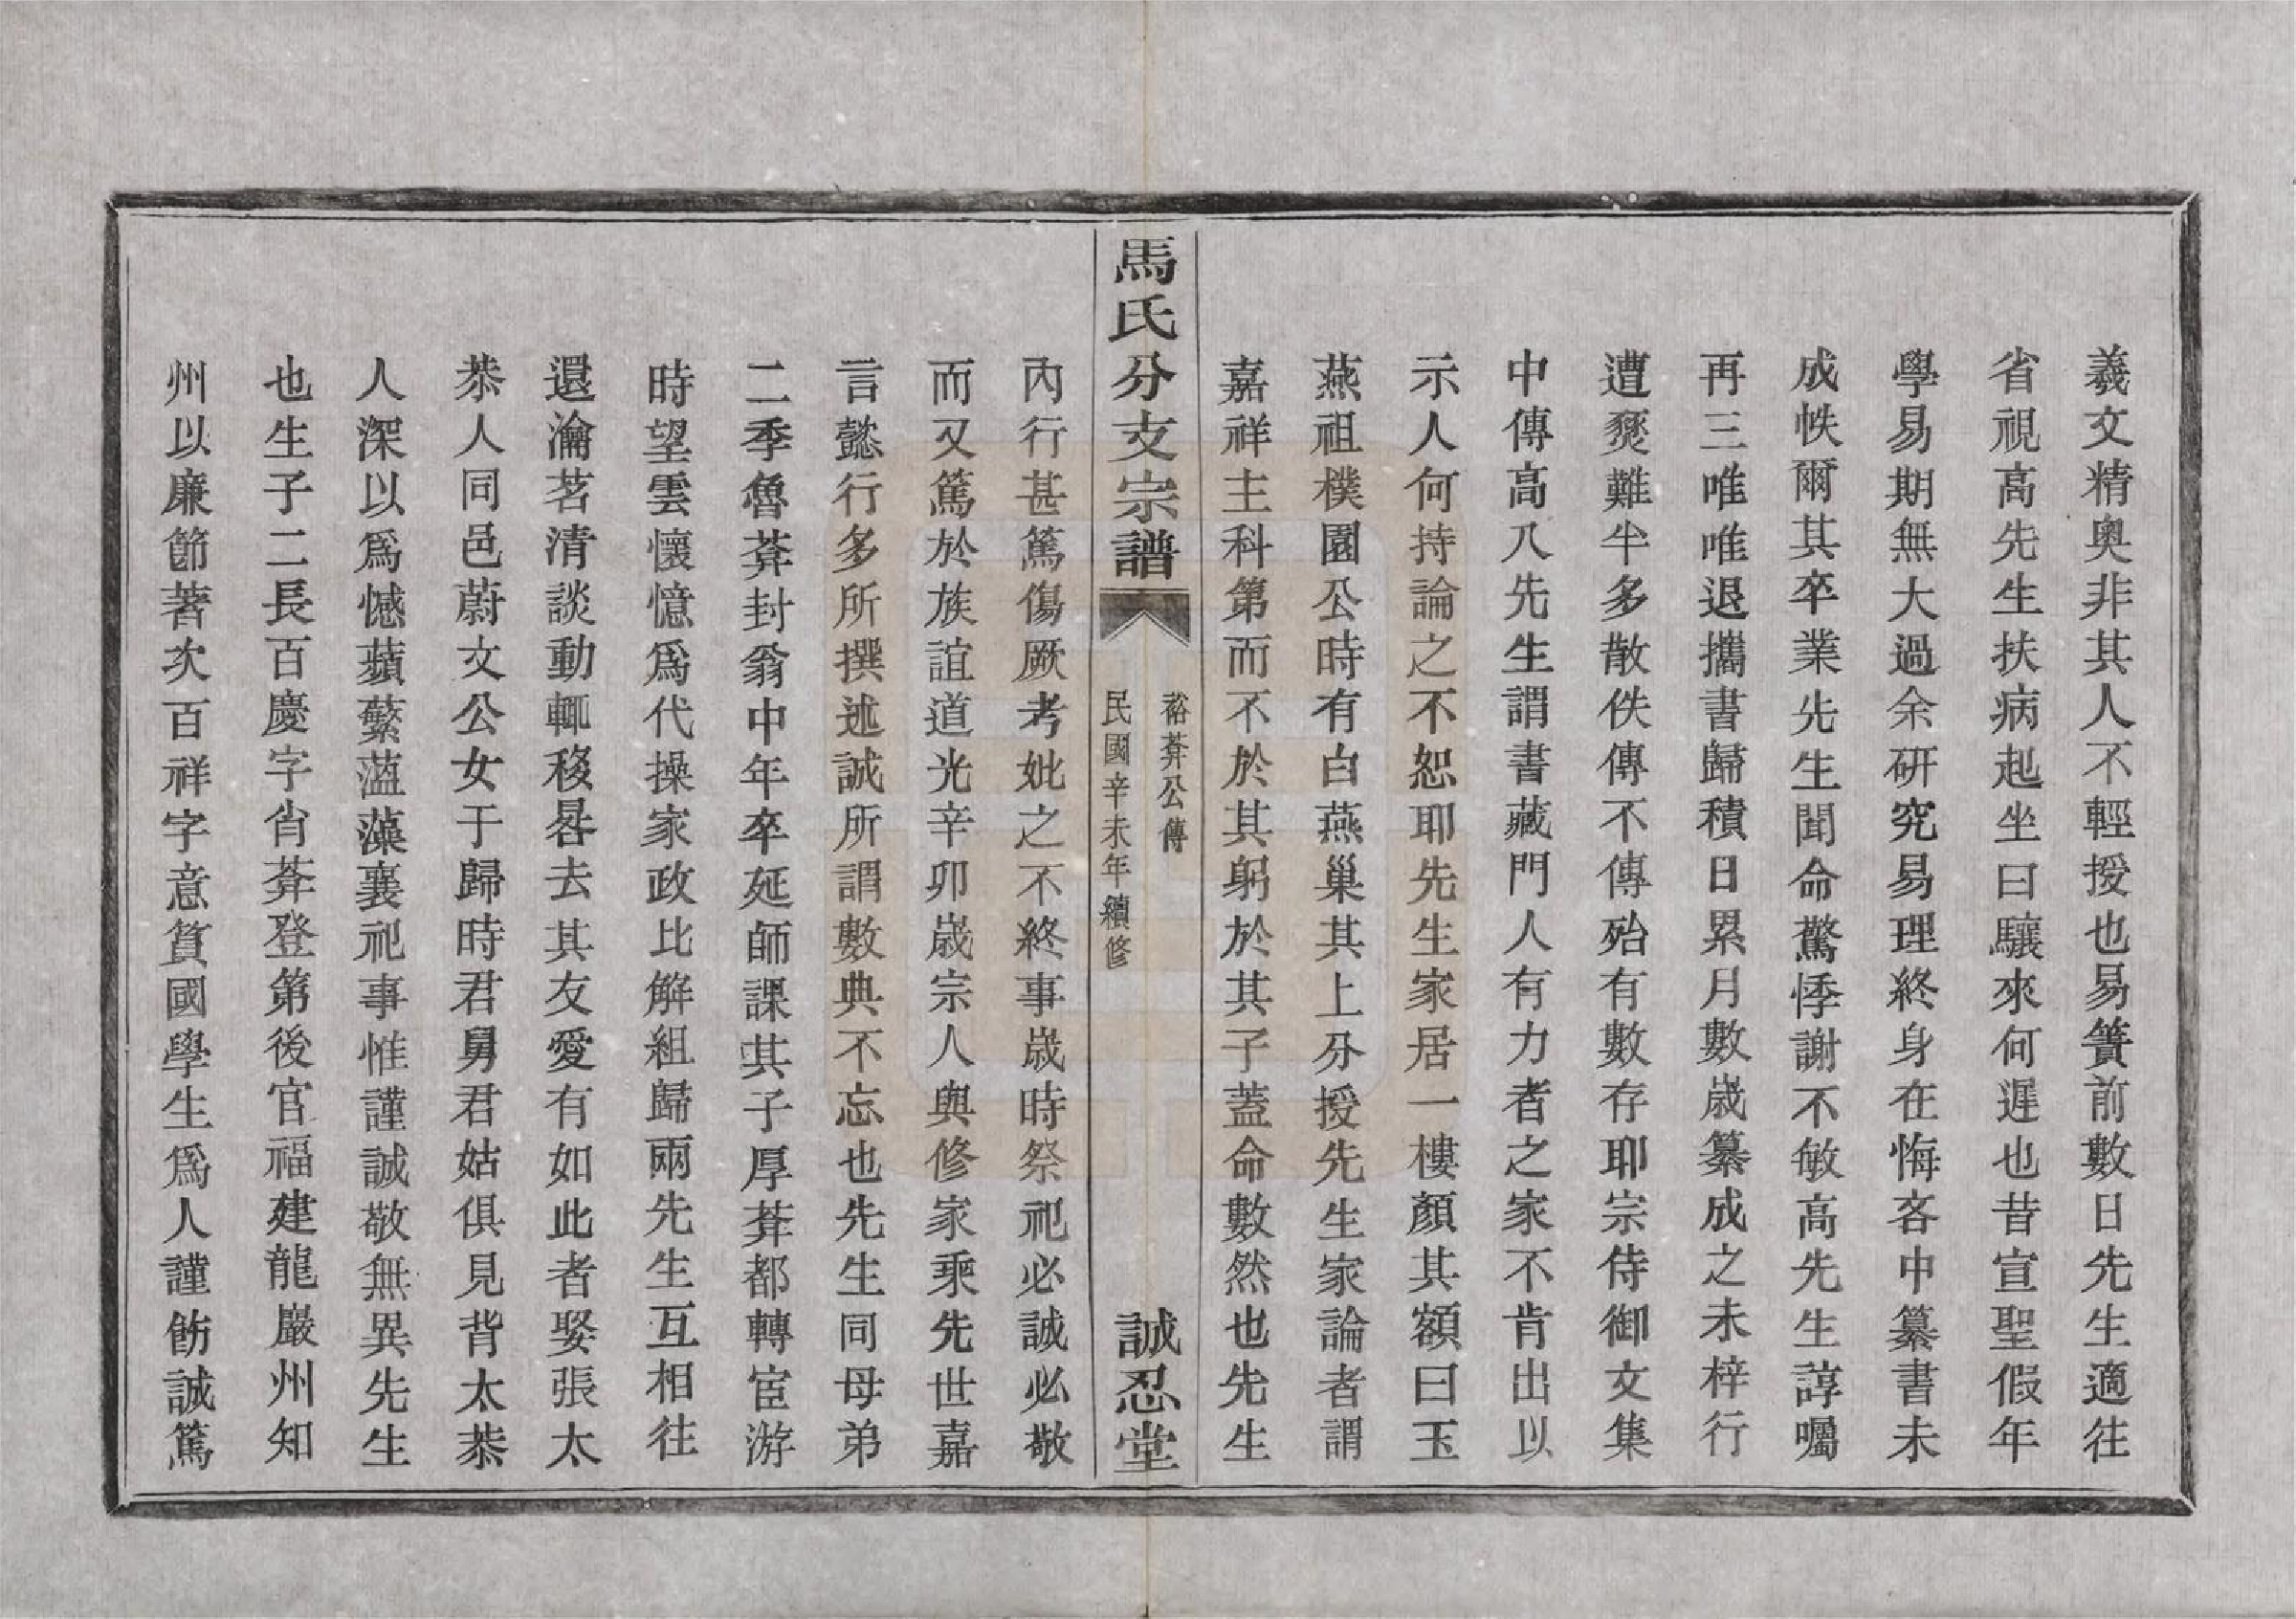 羲文精奧非其人不輕授也易簀前數日先生適往
省視高先生扶病起坐曰驤來何遲也昔宣聖假年
學易期無大過余研究易理終身在悔吝中纂書未
成帙爾其卒業先生聞命驚悸謝不敏高先生諄囑
再三唯唯退攜書歸積日累月數歲纂成之未梓行
遭爕難半多散佚傳不傳殆有數存耶宗侍御文集
中傳高八先生謂書藏門人有力者之家不肯出以
示人何持論之不恕耶先生家居一樓顏其額曰玉
燕祖樸園公時有白燕巢其上分授先生家論者謂
嘉祥主科第而不於其躬於其子蓋命數然也先生
馬氏分支宗譜
裕葊公傳
民國辛未年續修
誠忍堂
內行甚篤傷厥考妣之不終事歲時祭祀必誠必敬
而又篤於族誼道光辛卯歲宗人與修家乘先世嘉
言懿行多所撰述誠所謂數典不忘也先生同母弟
二季魯葊封翁中年卒延師課其子厚葊都轉宦游
時望雲懷憶爲代操家政比解組歸兩先生互相往
還瀹茗清談動輒移晷去其友愛有如此者娶張太
恭人同邑蔚文公女于歸時君舅君姑俱見背太恭
人深以爲憾蘋蘩薀藻襄祀事惟謹誠敬無異先生
也生子二長百慶字肖葊登第後官福建龍巖州知
州以廉節著次百祥字意篔國學生爲人謹飭誠篤